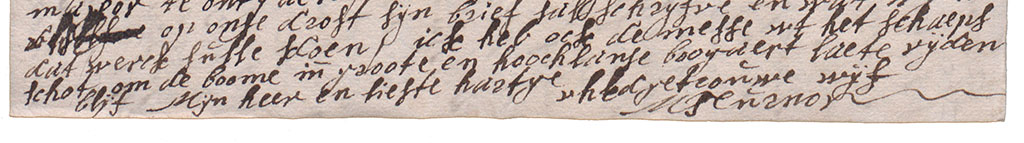 op onse drost sijn brief sal schryfve en wat
dat werck sulle doen, ick heb ock de messe wt het schaeps
schot om de boome in groote en hoochlanse bogaert laete rijden
blijf Mijn heer en liefste hartye uhed getrouwe wijf
M Teurnor